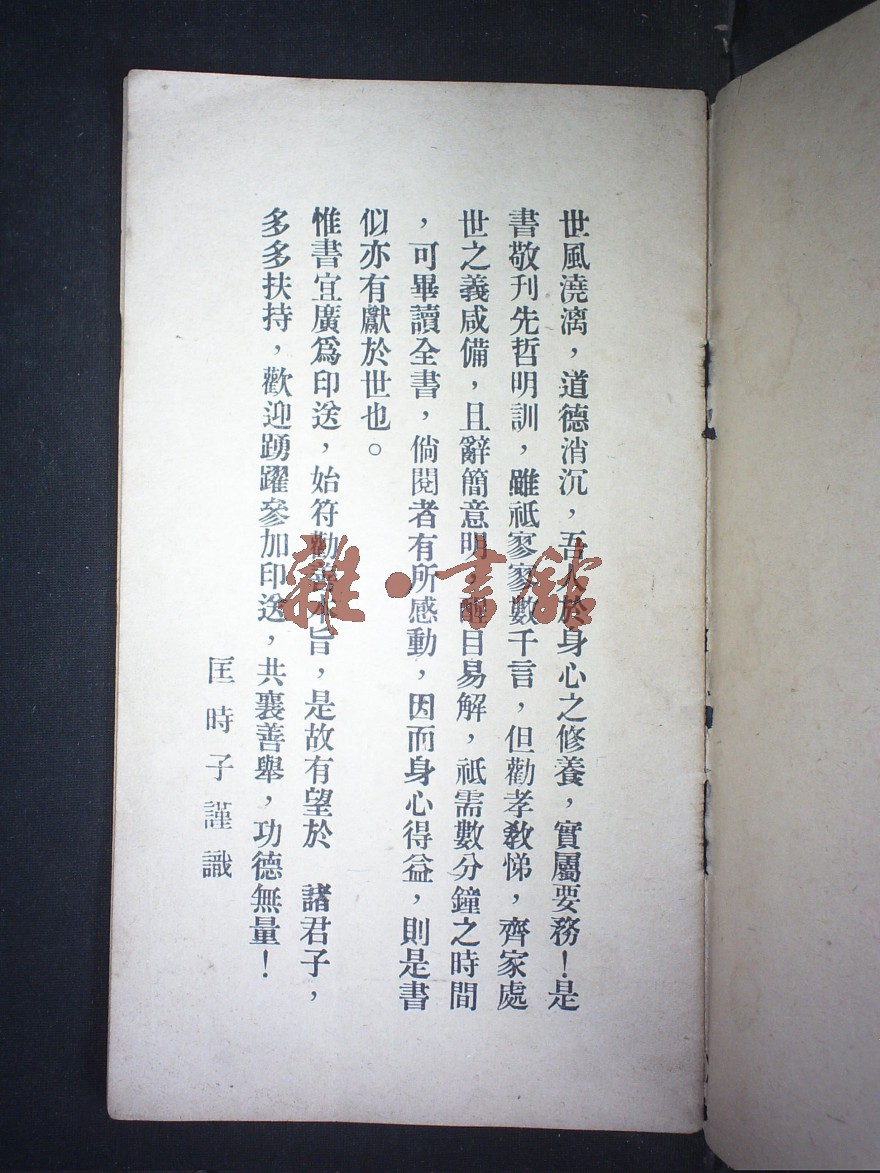 世風澆漓，道德消沉，吾人於身心之修養，實屬要務！是
書敬刊先哲明訓，雖祇寥寥數千言，但勸孝教悌，齊家處
世之義咸備，且辭簡意明，醒目易解，祇需數分鐘之時間
，可畢讀全書，倘閱者有所感動，因而身心得益，則是書
似亦有獻於世也。
惟書宜廣爲印送，始符勸善本旨，是故有望於　諸君子，
多多扶持，歡迎踴躍參加印送，共襄善舉，功德無量！
匡時子謹識
雜·書館